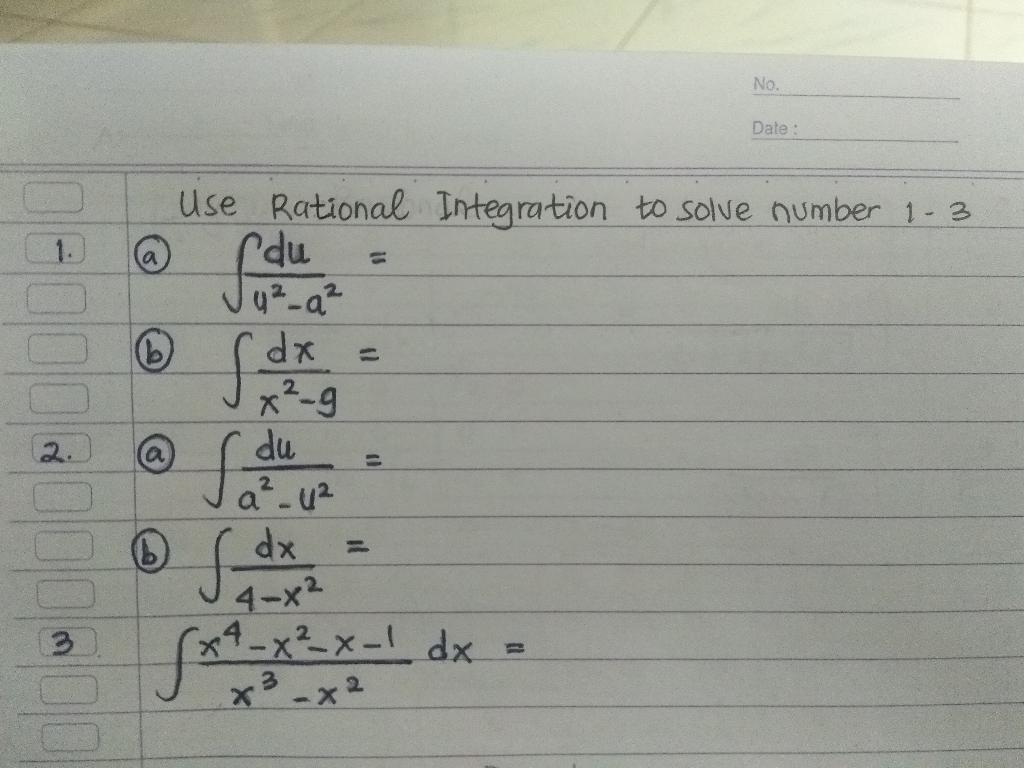 No.
Date :
Use Rational Integration to solve number 1 - 3
1. (a) ∫ du / (u² - a²) =
(b) ∫ dx / (x² - 9) =
2. (a) ∫ du / (a² - u²) =
(b) ∫ dx / (4 - x²) =
3 ∫ (x⁴ - x² - x - 1) / (x³ - x²) dx =